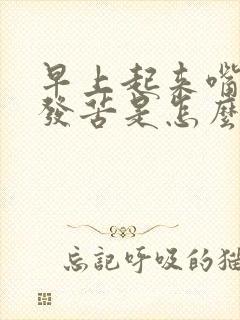 早上起来嘴
發苦是怎麼
忘记呼吸的猫